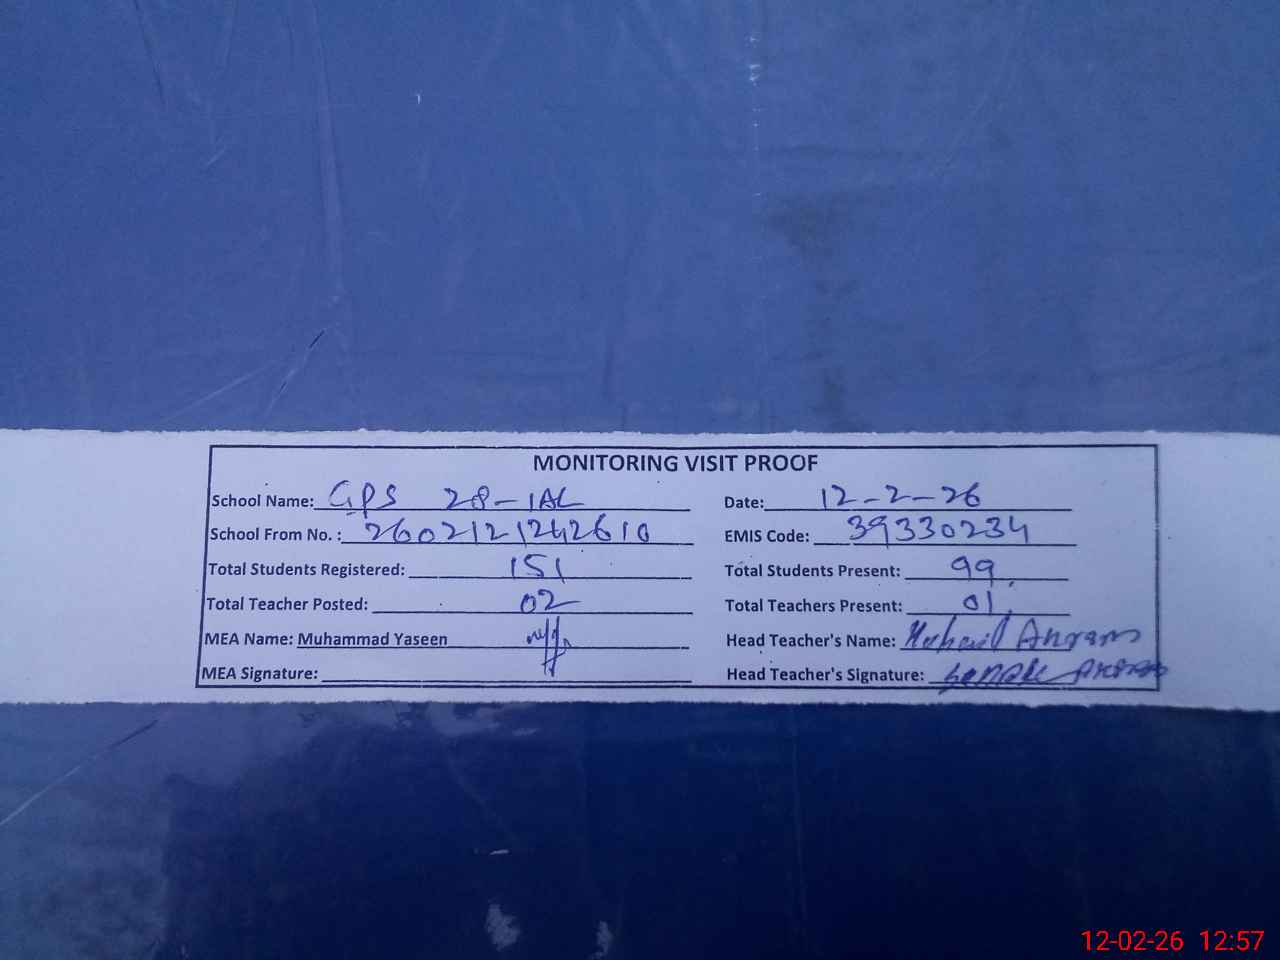 MONITORING VISIT PROOF
School Name: GPS 28-1AL Date: 12-2-26
School From No. : 2602121242610 EMIS Code: 39330234
Total Students Registered: 151 Total Students Present: 99
Total Teacher Posted: 02 Total Teachers Present: 01
MEA Name: Muhammad Yaseen Head Teacher's Name:
MEA Signature: Head Teacher's Signature:
12-02-26 12:57